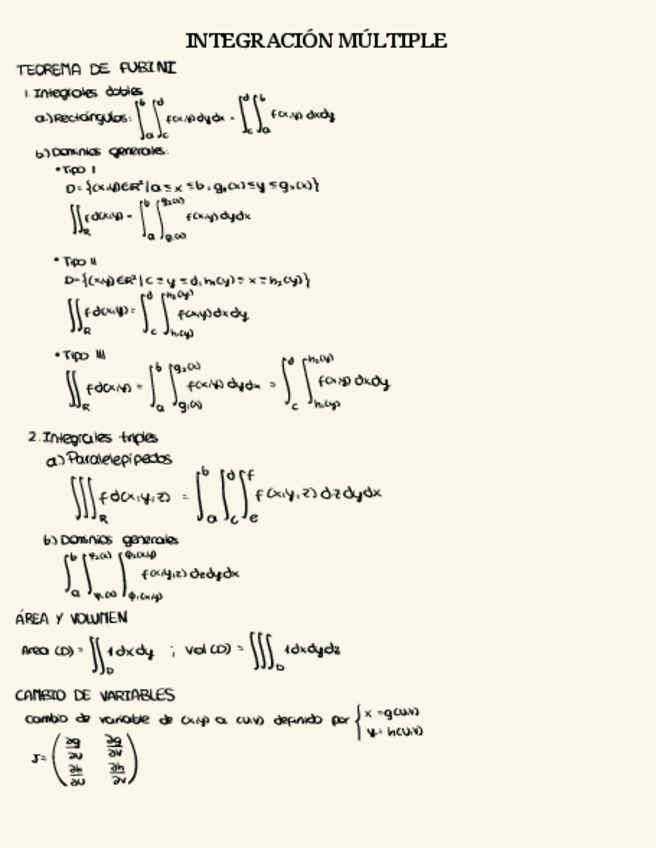 INTEGRACIÓN MÚLTIPLE
TEOREMA DE FUBINI
1. Integrales dobles
a) Rectángulos: ∫_a^b ∫_c^d f(x,y) dy dx = ∫_c^d ∫_a^b f(x,y) dx dy
b) Dominios generales:
• Tipo I
D = {(x,y) ∈ R² | a ≤ x ≤ b, g₁(x) ≤ y ≤ g₂(x)}
∬_R f d(x,y) = ∫_a^b ∫_{g₁(x)}^{g₂(x)} f(x,y) dy dx
• Tipo II
D = {(x,y) ∈ R² | c ≤ y ≤ d, h₁(y) ≤ x ≤ h₂(y)}
∬_R f d(x,y) = ∫_c^d ∫_{h₁(y)}^{h₂(y)} f(x,y) dx dy
• Tipo III
∬_R f d(x,y) = ∫_a^b ∫_{g₁(x)}^{g₂(x)} f(x,y) dy dx = ∫_c^d ∫_{h₁(y)}^{h₂(y)} f(x,y) dx dy
2. Integrales triples
a) Paralelepípedos
∭_R f d(x,y,z) = ∫_a^b ∫_c^d ∫_e^f f(x,y,z) dz dy dx
b) Dominios generales
∫_a^b ∫_{φ₁(x)}^{φ₂(x)} ∫_{φ₁(x,y)}^{φ₂(x,y)} f(x,y,z) dz dy dx
ÁREA Y VOLUMEN
Area (D) = ∬_D 1 dx dy ; Vol (D) = ∭_D 1 dx dy dz
CAMBIO DE VARIABLES
cambio de variable de (x,y) a (u,v) definido por { x = g(u,v)
y = h(u,v)
J = ( ∂g/∂u ∂g/∂v
∂h/∂u ∂h/∂v )